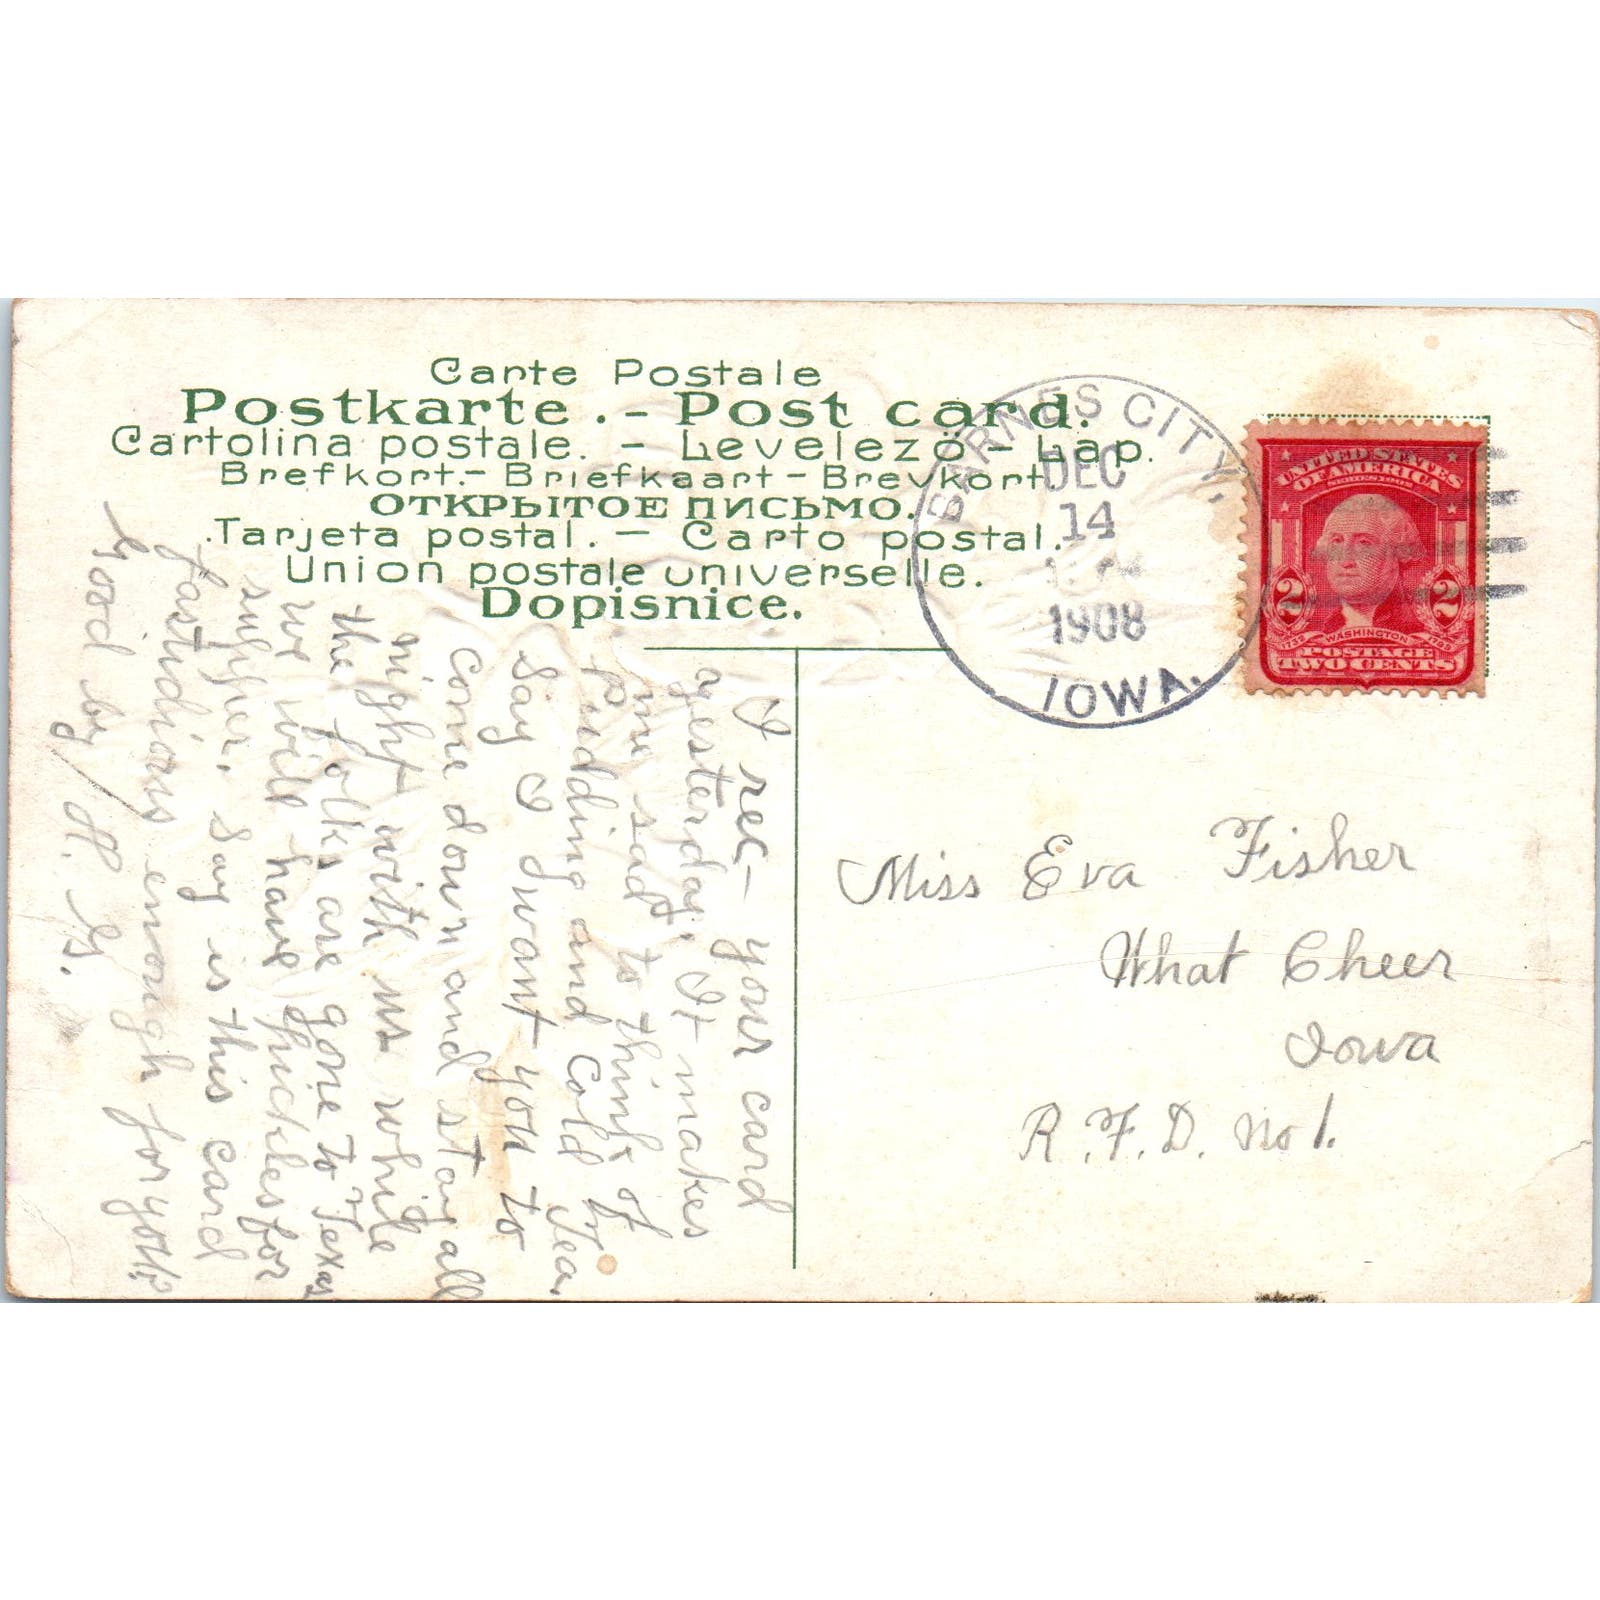 Carte Postale
Postkarte. - Post card.
Cartolina postale. - Levelezö - Lap.
Brefkort. - Briefkaart - Brevkort.
ОТКРЫТОЕ ПИСЬМО.
Tarjeta postal. - Carto postal.
Union postale universelle.
Dopisnice.
BARNES CITY,
DEC
14
1908
IOWA.
UNITED STATES
OF AMERICA
SERIES 1902
2 2
1732 WASHINGTON 1799
POSTAGE
TWO CENTS
I rec- your card
yesterday. It makes
me sad to think of
Pudding and Cold Tea.
Say I want you to
come down and stay all
night with us while
the folks are gone To Texas
we will have Pickles for
supper. Say is this card
fastidious enough for you?
Good by / H. G.
Miss Eva Fisher
What Cheer
Iowa
R.F.D. No 1.